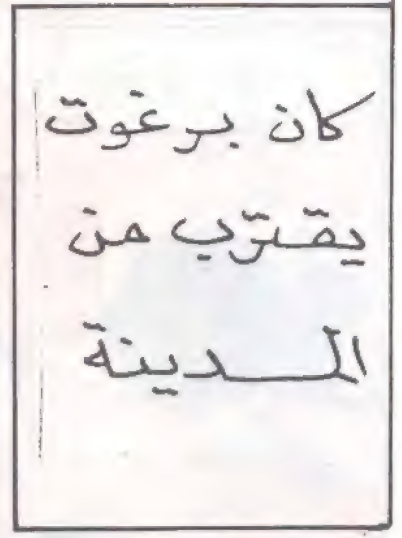 كان برغوت
يقترب من
المدينة